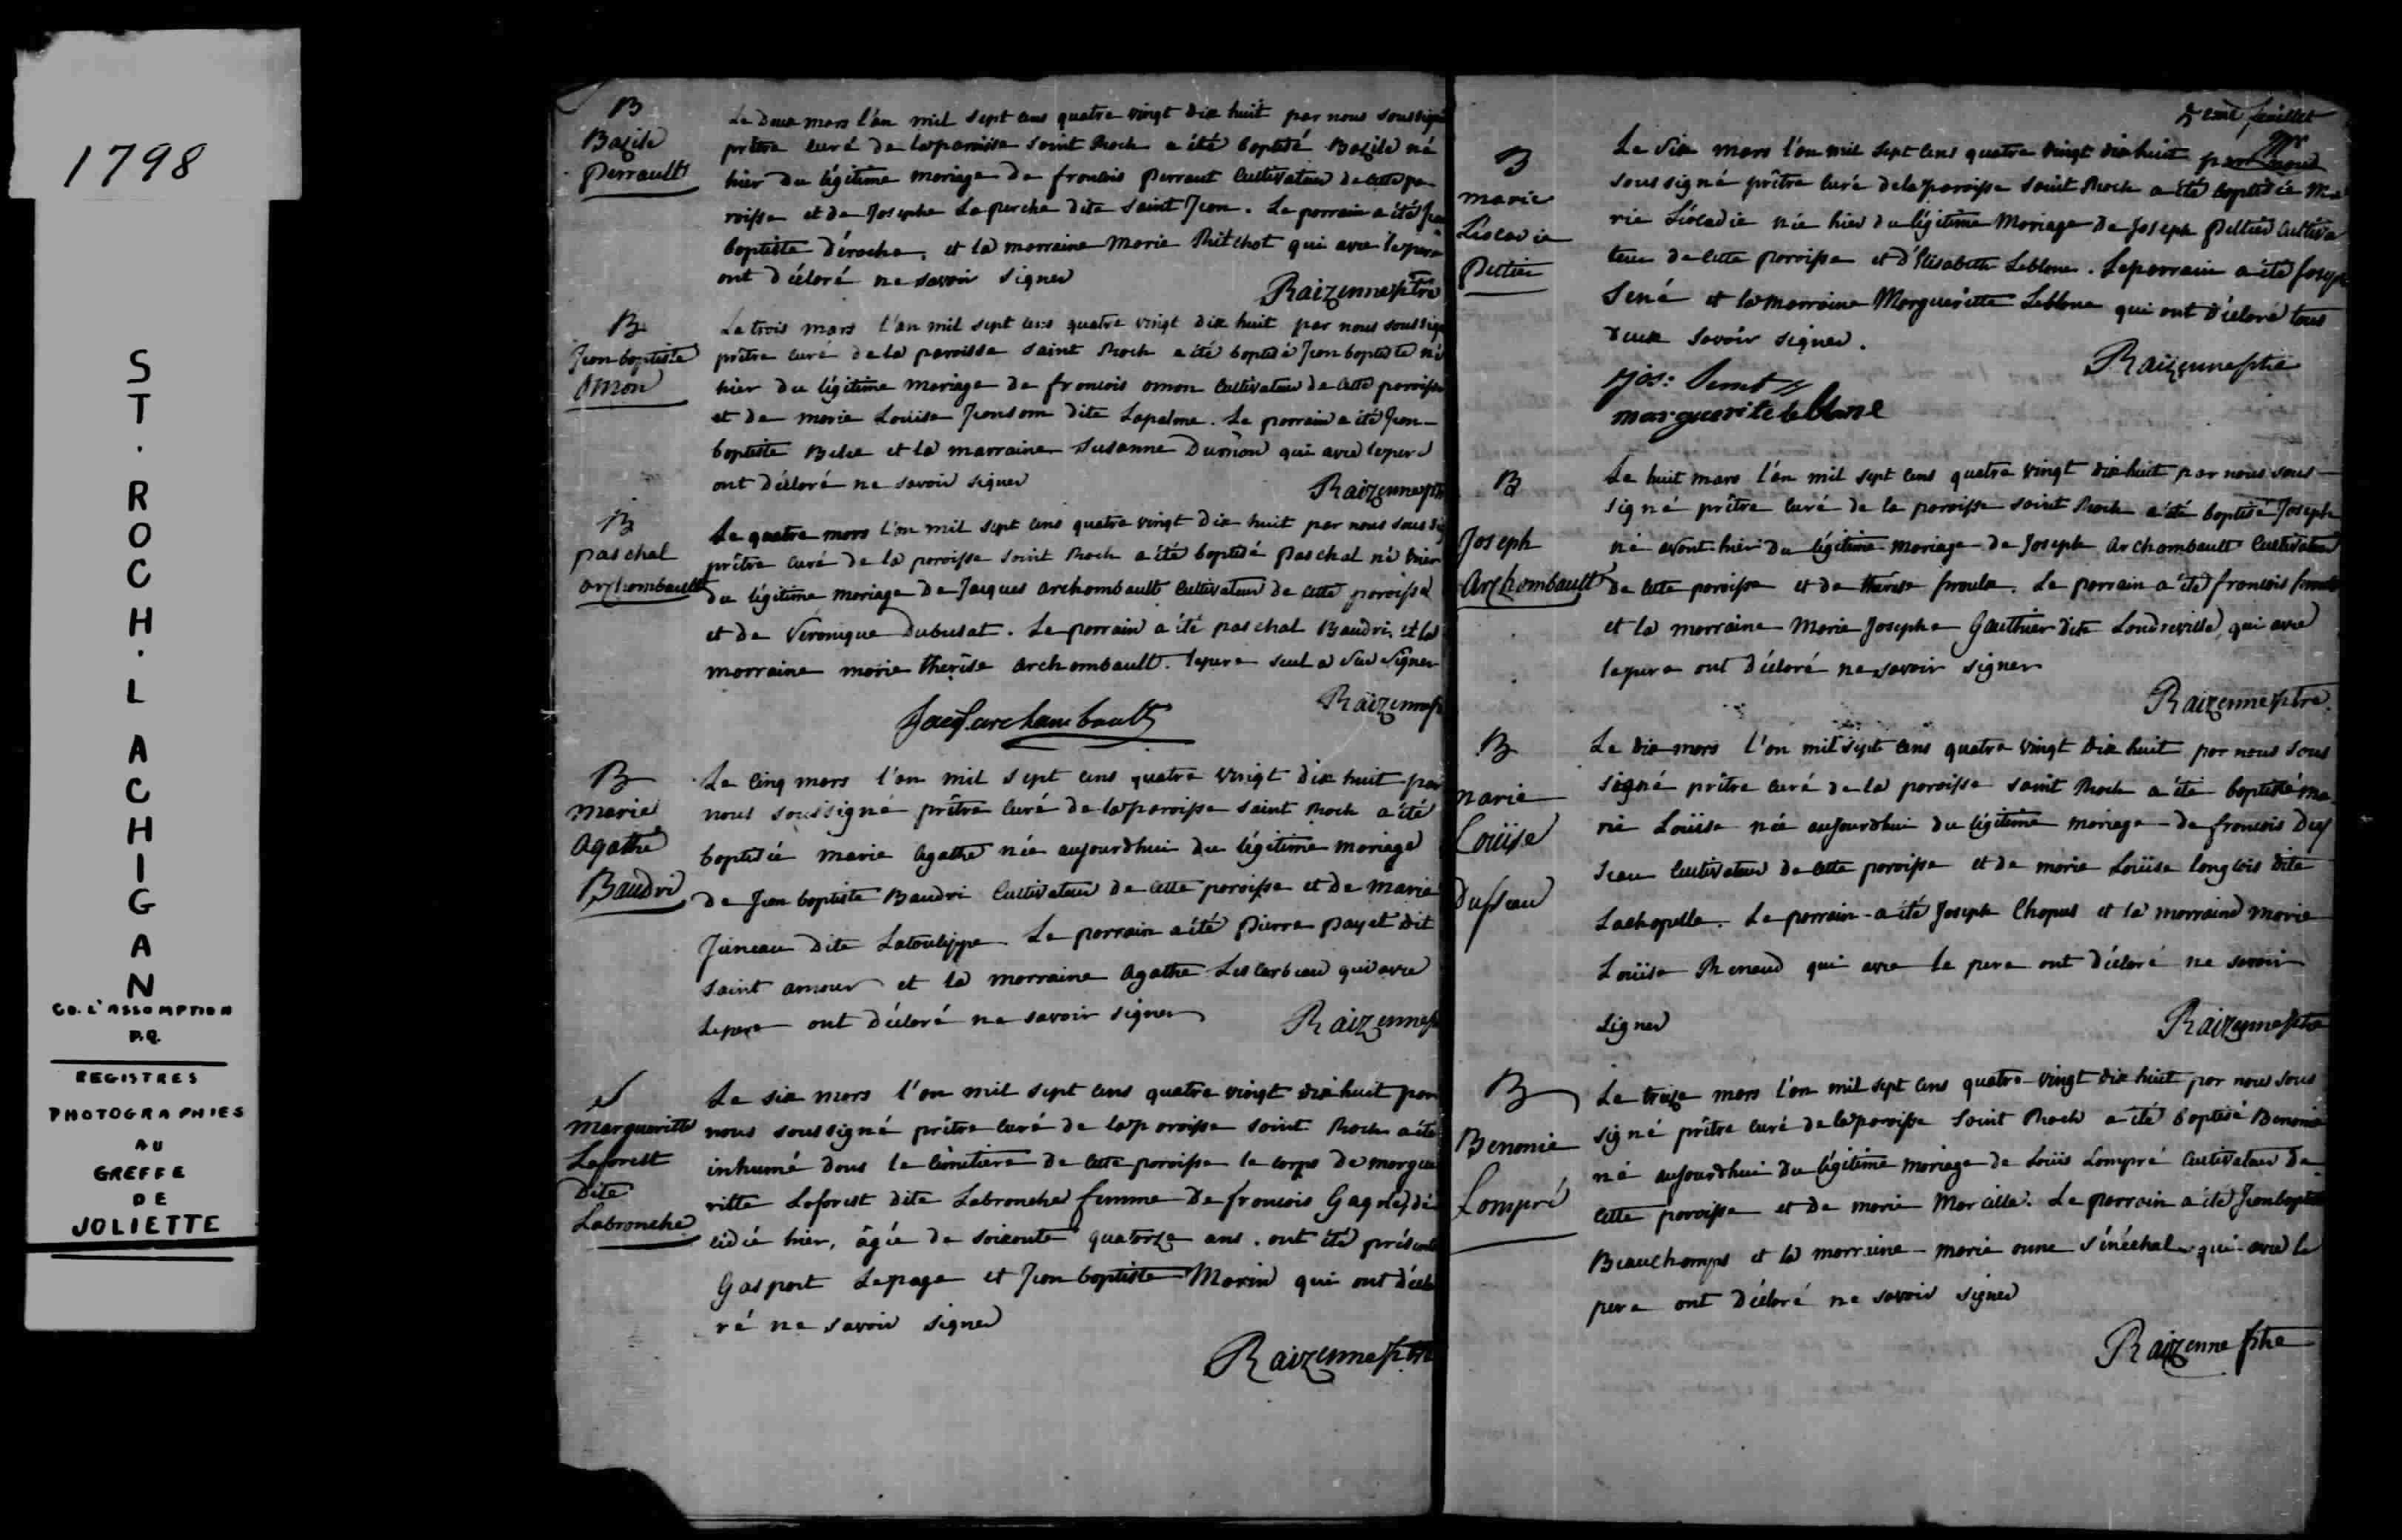 1798
ST. ROCH. L ACHIGAN
CO. L'ASSOMPTION
P.Q.
REGISTRES
PHOTOGRAPHIES
AU
GREFFE
DE
JOLIETTE
B
Bazile
Perrault
Le deux mars l'an mil sept cens quatre vingt dix huit par nous soussigné
prêtre curé de la paroisse saint Roch a été baptisé Bazile né
hier du légitime mariage de francois perraut Cultivateur de cette pa-
roisse et de Josephe Laperche dite saint Jean. Le parrain a été
baptiste déroche, et la marraine marie Ritchot qui avec le père
ont déclaré ne savoir signer
Raizenne ptre
B
Jean baptiste
Omon
Le trois mars l'an mil sept cens quatre vingt dix huit par nous soussigné
prêtre curé de la paroisse saint Roch a été baptisé Jean baptiste né
hier du légitime mariage de francois omon Cultivateur de cette paroisse
et de marie Louise Jeansom dite Lapalme. Le parrain a été Jean-
baptiste et la marraine Susanne Dumon qui avec le pere
ont déclaré ne savoir signer
Raizenne ptre
B
paschal
archambault
Le quatre mars l'an mil sept cens quatre vingt dix huit par nous soussig
prêtre curé de la paroisse saint Roch a été baptisé paschal né hier
du légitime mariage de Jacques archambault Cultivateur de cette paroisse
et de Véronique Dubusat. Le parrain a été paschal Baudri, et la
marraine marie therèse archambault. le pere seul a sçu signer
Raizenne p
Jacq. archambault
B
marie
Agathe
Baudri
Le cinq mars l'an mil sept cens quatre vingt dix huit par
nous soussigné prêtre curé de la paroisse saint Roch a été
baptisée marie Agathe née aujourdhui du légitime mariage
de Jean baptiste Baudri Cultivateur de cette paroisse et de marie
Juneau dite Latoulippe. Le parrain a été Pierre payet dit
saint amour et la marraine Agathe Lescarbeau qui avec
le pere ont déclaré ne savoir signer
Raizenne p
S
Margueritte
Laforest
dite
Labronche
Le six mars l'an mil sept cens quatre vingt dix huit par
nous soussigné prêtre curé de la paroisse saint Roch a été
inhumé dans le cimetiere de cette paroisse le corps de margue
ritte Laforest dite Labronche femme de francois Gagné, dé
cidée hier, âgée de soixante quatorze ans. ont été présents
Gaspart Lepage et Jean baptiste Morin qui ont décla
ré ne savoir signer
Raizenne ptre
5 eme feuillet
B
marie
Léocadie
Peltier
Le six mars l'an mil sept cens quatre vingt dix huit par nous
soussigné prêtre curé de la paroisse saint Roch a été baptisée Ma
rie Léocadie née hier du légitime Mariage de Joseph Peltier Cultiva
teur de cette paroisse et d'Elisabeth Leblanc. Le parrain a été Joseph
Sené et la marraine Marguerite Leblanc qui ont déclaré tous
deux savoir signer.
Raizenne ptre
marguerite leblanc
B
Joseph
Archambault
Le huit mars l'an mil sept cens quatre vingt dix huit par nous sous-
signé prêtre curé de la paroisse saint Roch a été baptisé Joseph
né avant hier du légitime mariage de Joseph Archambault Cultivateur
de cette paroisse et de thérese proulx. Le parrain a été francois proulx
et la marraine Marie Josephe Gauthier dite Landreville, qui avec
le pere ont déclaré ne savoir signer
Raizenne ptre
B
marie
Louïse
Dusseau
Le dix mars l'an mil sept cens quatre vingt dix huit par nous sous
signé prêtre curé de la paroisse saint Roch a été baptisé ma
rie Louïse née aujourdhui du légitime mariage de francois Dus
seau Cultivateur de cette paroisse et de marie Louïse langlois dite
Lachapelle. Le parrain a été Joseph Chaput et la marraine marie
Louïse Renaud qui avec le pere ont déclaré ne savoir
signer
Raizenne ptre
B
Benonie
Lompré
Le treize mars l'an mil sept cens quatre-vingt dix huit par nous sous
signé prêtre curé de la paroisse Saint Roch a été baptisé Benonie
né aujourdhui du légitime mariage de Louïs Lompré Cultivateur de
cette paroisse et de marie Marcille. Le parrain a été Jean baptiste
Beauchamps et la marraine marie anne Sénéchal qui avec le
pere ont déclaré ne savoir signer
Raizenne ptre